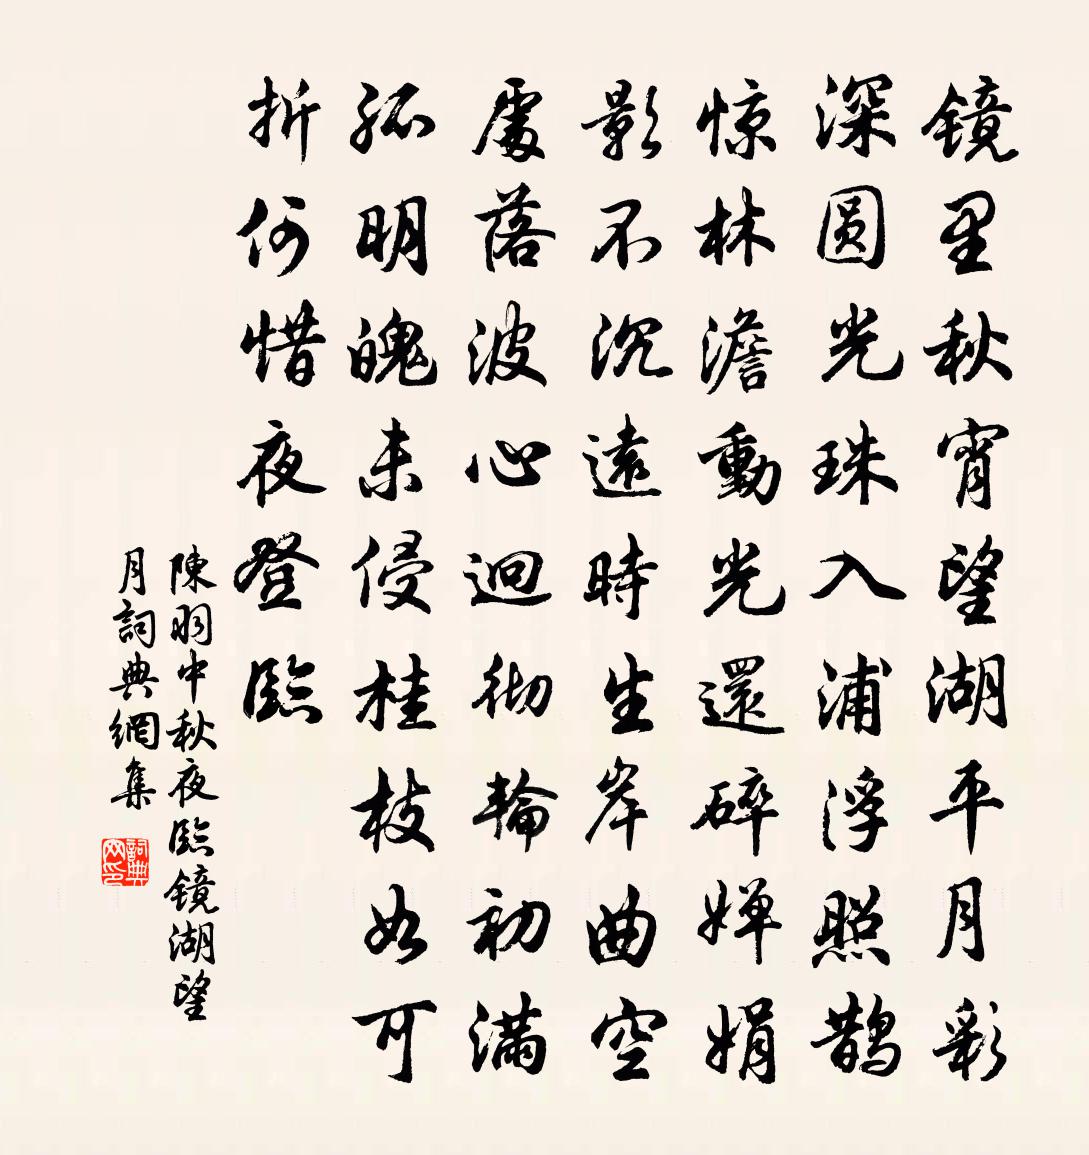 镜里秋宵望湖平月彩
深圆光珠入浦浮照鹊
惊林澹動光還碎婵娟
影不沉遠時生岸曲空
處落波心迥彻輪初满
孤明魄未侵桂枝如可
折何惜夜登臨
陳羽中秋夜臨镜湖望
月詞典網集
詞典
网印